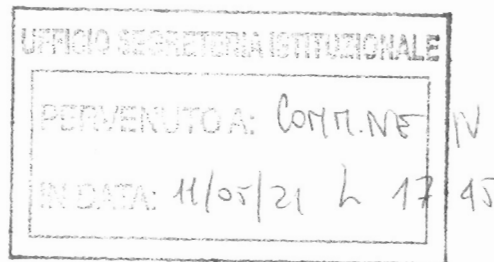 UFFICIO SEGRETERIA ISTITUZIONALE
PERVENUTO A: COMM.NE IV
IN DATA: 11/05/21 h 17 45